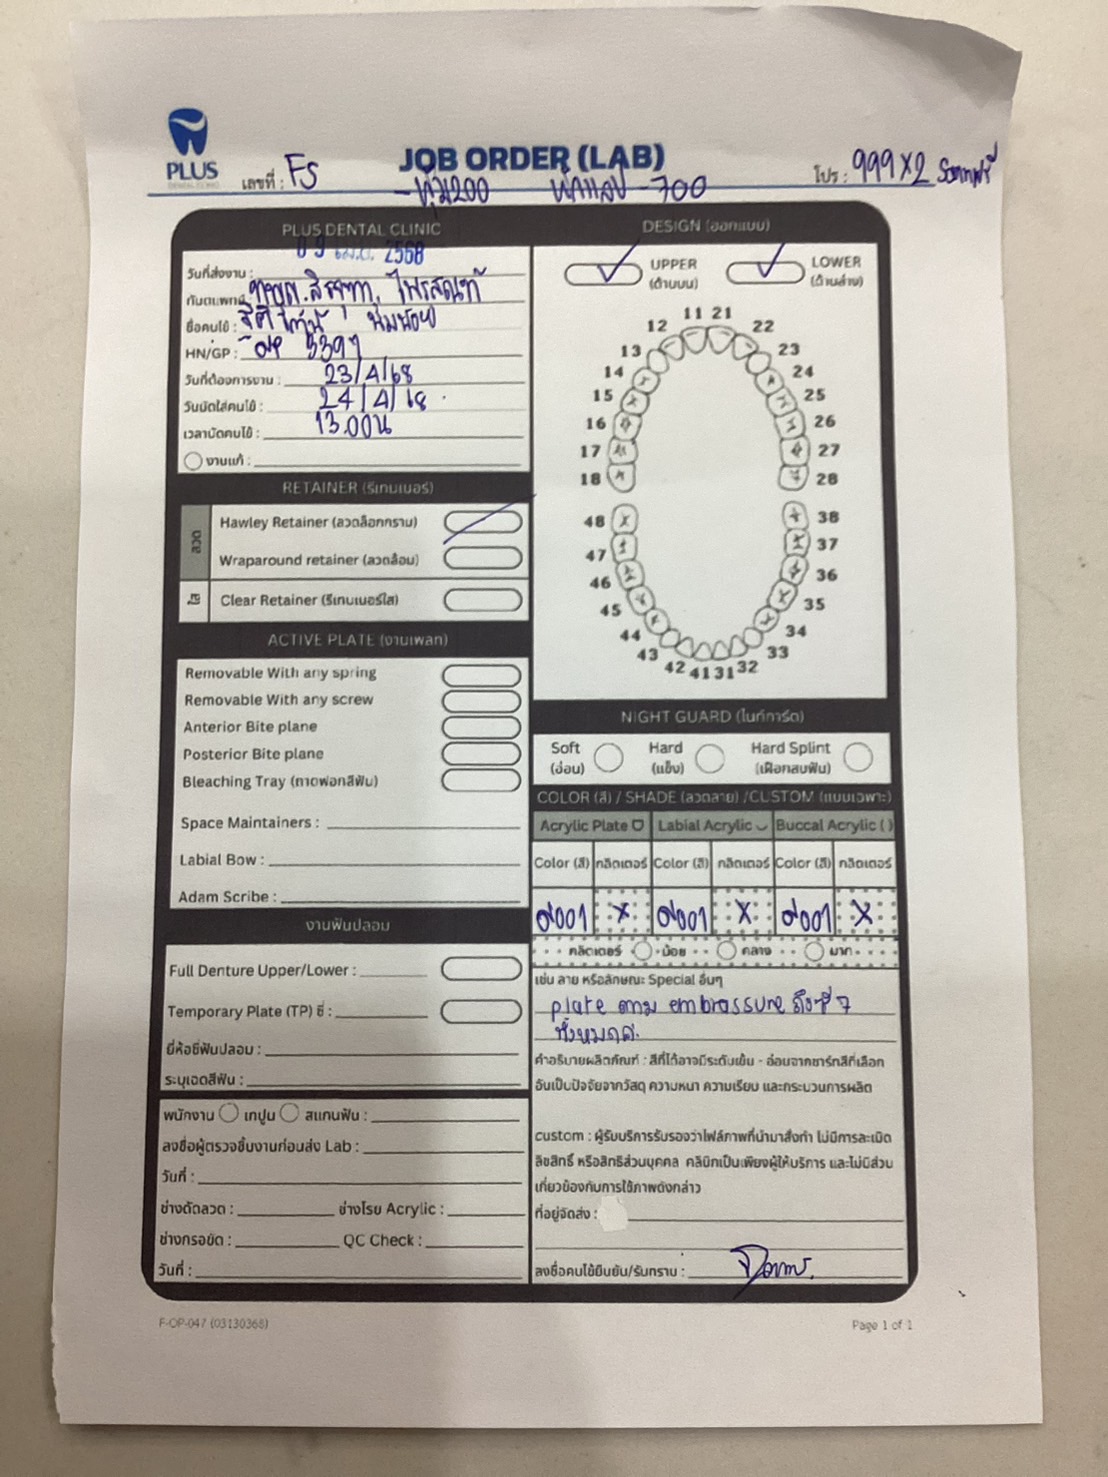 PLUS
DENTAL CLINIC
เลขที่ : FS
JOB ORDER (LAB)
โปร : 999x2
200 -700
PLUS DENTAL CLINIC
09 เม.ย. 2568
วันที่ส่งงาน :
ทันตแพทย์
ชื่อคนไข้ :
HN/GP : 5397
วันที่ต้องการงาน : 23/4/68
วันนัดใส่คนไข้ : 24/4/68
เวลานัดคนไข้ : 13.00น
งานแก้ :
RETAINER (รีเทนเนอร์)
ลวด
Hawley Retainer (ลวดล็อกกราม)
Wraparound retainer (ลวดล้อม)
ใส
Clear Retainer (รีเทนเนอร์ใส)
ACTIVE PLATE (งานเพลท)
Removable With any spring
Removable With any screw
Anterior Bite plane
Posterior Bite plane
Bleaching Tray (ถาดฟอกสีฟัน)
Space Maintainers :
Labial Bow :
Adam Scribe :
งานฟันปลอม
Full Denture Upper/Lower :
Temporary Plate (TP) ซี่ :
ยี่ห้อซี่ฟันปลอม :
ระบุเฉดสีฟัน :
พนักงาน เทปูน สแกนฟัน :
ลงชื่อผู้ตรวจชิ้นงานก่อนส่ง Lab :
วันที่ :
ช่างดัดลวด : ช่างโรย Acrylic :
ช่างกรอขัด : QC Check :
วันที่ :
DESIGN (ออกแบบ)
UPPER
(ด้านบน)
LOWER
(ด้านล่าง)
11 21
12 22
13 23
14 24
15 25
16 26
17 27
18 28
48 38
47 37
46 36
45 35
44 34
43 33
42 41 31 32
NIGHT GUARD (ไนท์การ์ด)
Soft
(อ่อน)
Hard
(แข็ง)
Hard Splint
(เฝือกสบฟัน)
COLOR (สี) / SHADE (ลวดลาย) /CUSTOM (แบบเฉพาะ)
Acrylic Plate Labial Acrylic Buccal Acrylic ( )
Color (สี) กลิตเตอร์ Color (สี) กลิตเตอร์ Color (สี) กลิตเตอร์
001 x 001 x 001 x
กลิตเตอร์ น้อย กลาง มาก
เช่น ลาย หรือลักษณะ Special อื่นๆ
plate ตาม embrassure ถึงซี่ 7
ทั้งหมดค่ะ
คำอธิบายผลิตภัณฑ์ : สีที่ได้อาจมีระดับเข้ม - อ่อนจากชาร์ทสีที่เลือก
อันเป็นปัจจัยจากวัสดุ ความหนา ความเรียบ และกระบวนการผลิต
custom : ผู้รับบริการรับรองว่าไฟล์ภาพที่นำมาสั่งทำ ไม่มีการละเมิด
ลิขสิทธิ์ หรือสิทธิส่วนบุคคล คลินิกเป็นเพียงผู้ให้บริการ และไม่มีส่วน
เกี่ยวข้องกับการใช้ภาพดังกล่าว
ที่อยู่จัดส่ง :
ลงชื่อคนไข้ยืนยัน/รับทราบ :
F-OP-047 (03130368)
Page 1 of 1